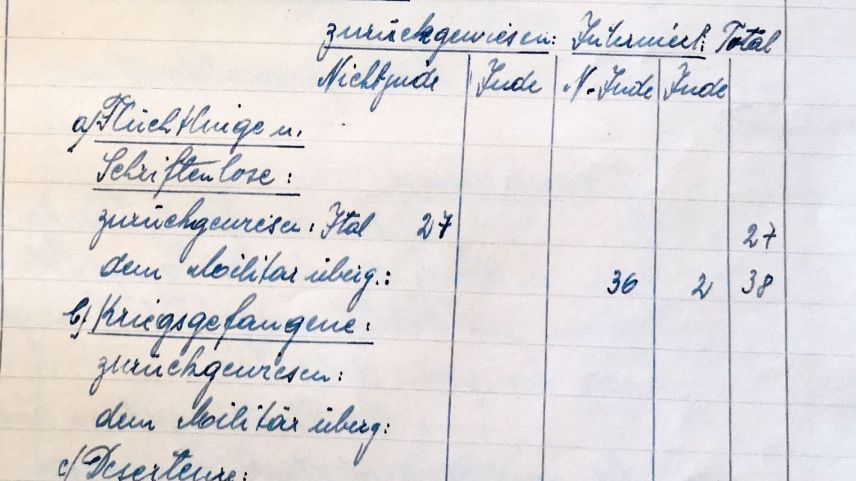 zurückgewiesen: Interniert: Total
Nichtjude Jude N.-Jude Jude
a) Flüchtlinge u.
Schriftenlose:
zurückgewiesen: Ital 27 27
dem Militär überg.: 36 2 38
b) Kriegsgefangene:
zurückgewiesen:
dem Militär überg:
c) Deserteure: